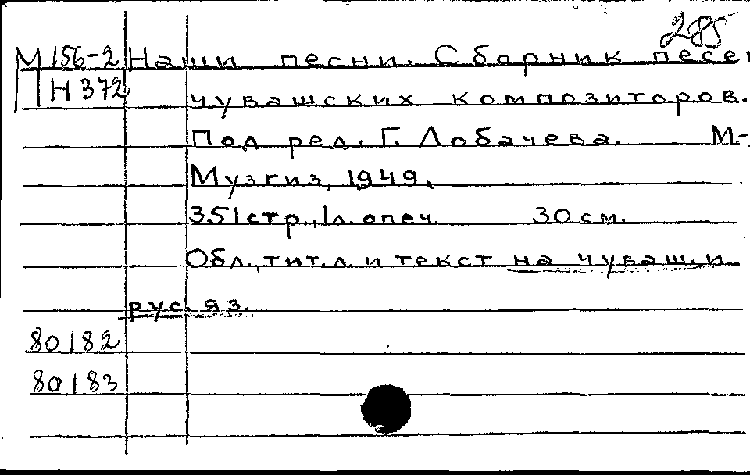 285
М 156-2 Наши песни. Сборник песе
Н 372 чувашских композиторов.
Под ред. Г. Лобачева. М-
Музгиз, 1949.
351 стр., 1 л. опеч. 30 см.
Обл., тит. л. и текст на чуваш. и
рус. яз.
80182
80183